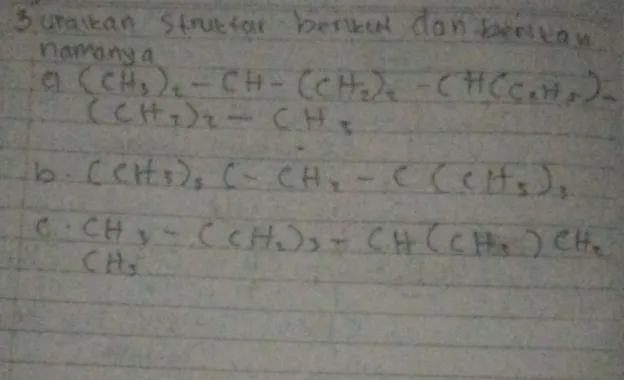 3 uraikan struktur berikut dan berikan
namanya
a (CH₃)₂ – CH – (CH₂)₂ – CH(C₂H₅) –
(CH₂)₂ – CH₃
b. (CH₃)₃ C – CH₂ – C (CH₃)₃
c. CH₃ – (CH₂)₃ – CH(CH₃) CH₂
CH₃